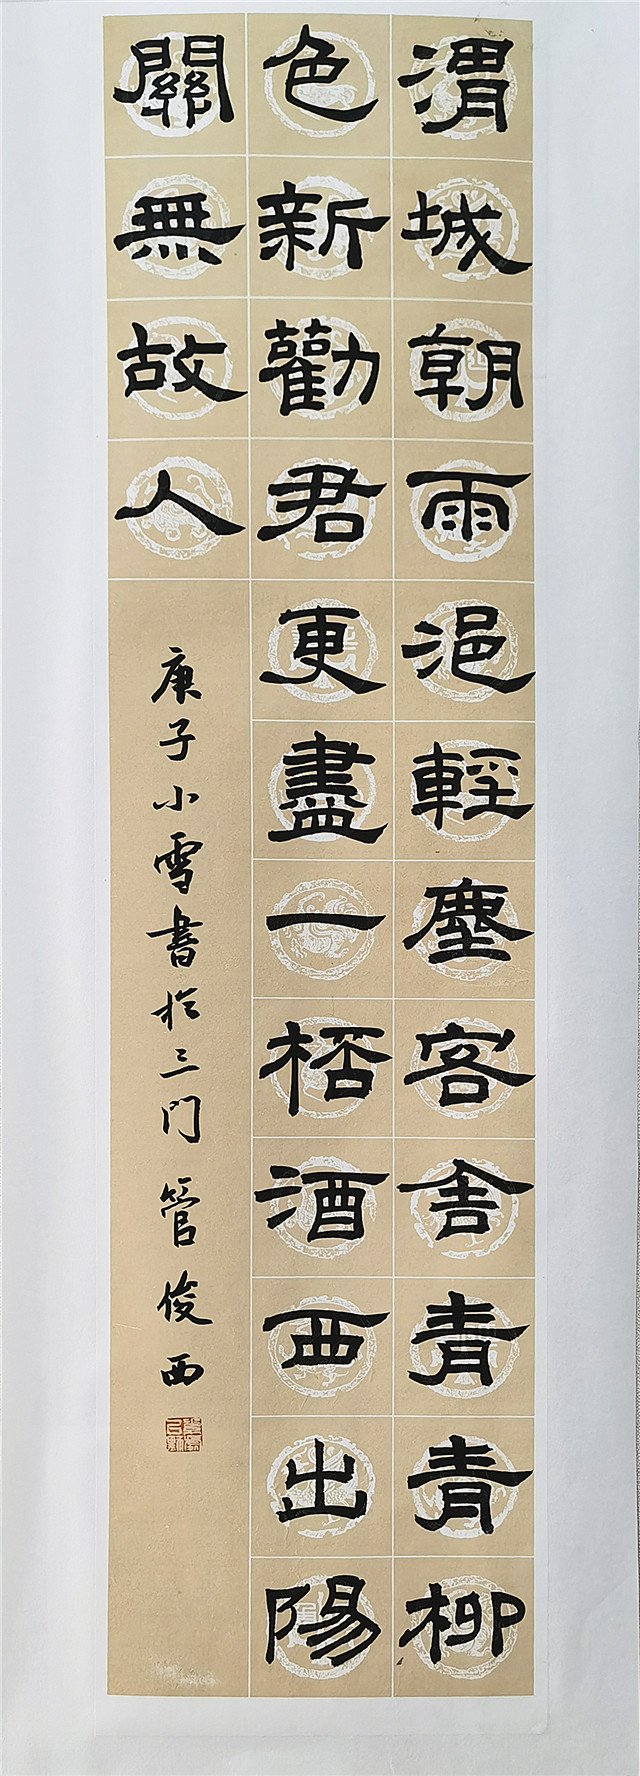 渭城朝雨浥輕塵客舍青青柳
色新勸君更盡一桮酒西出陽
關無故人
庚子小雪書於三門管俊西